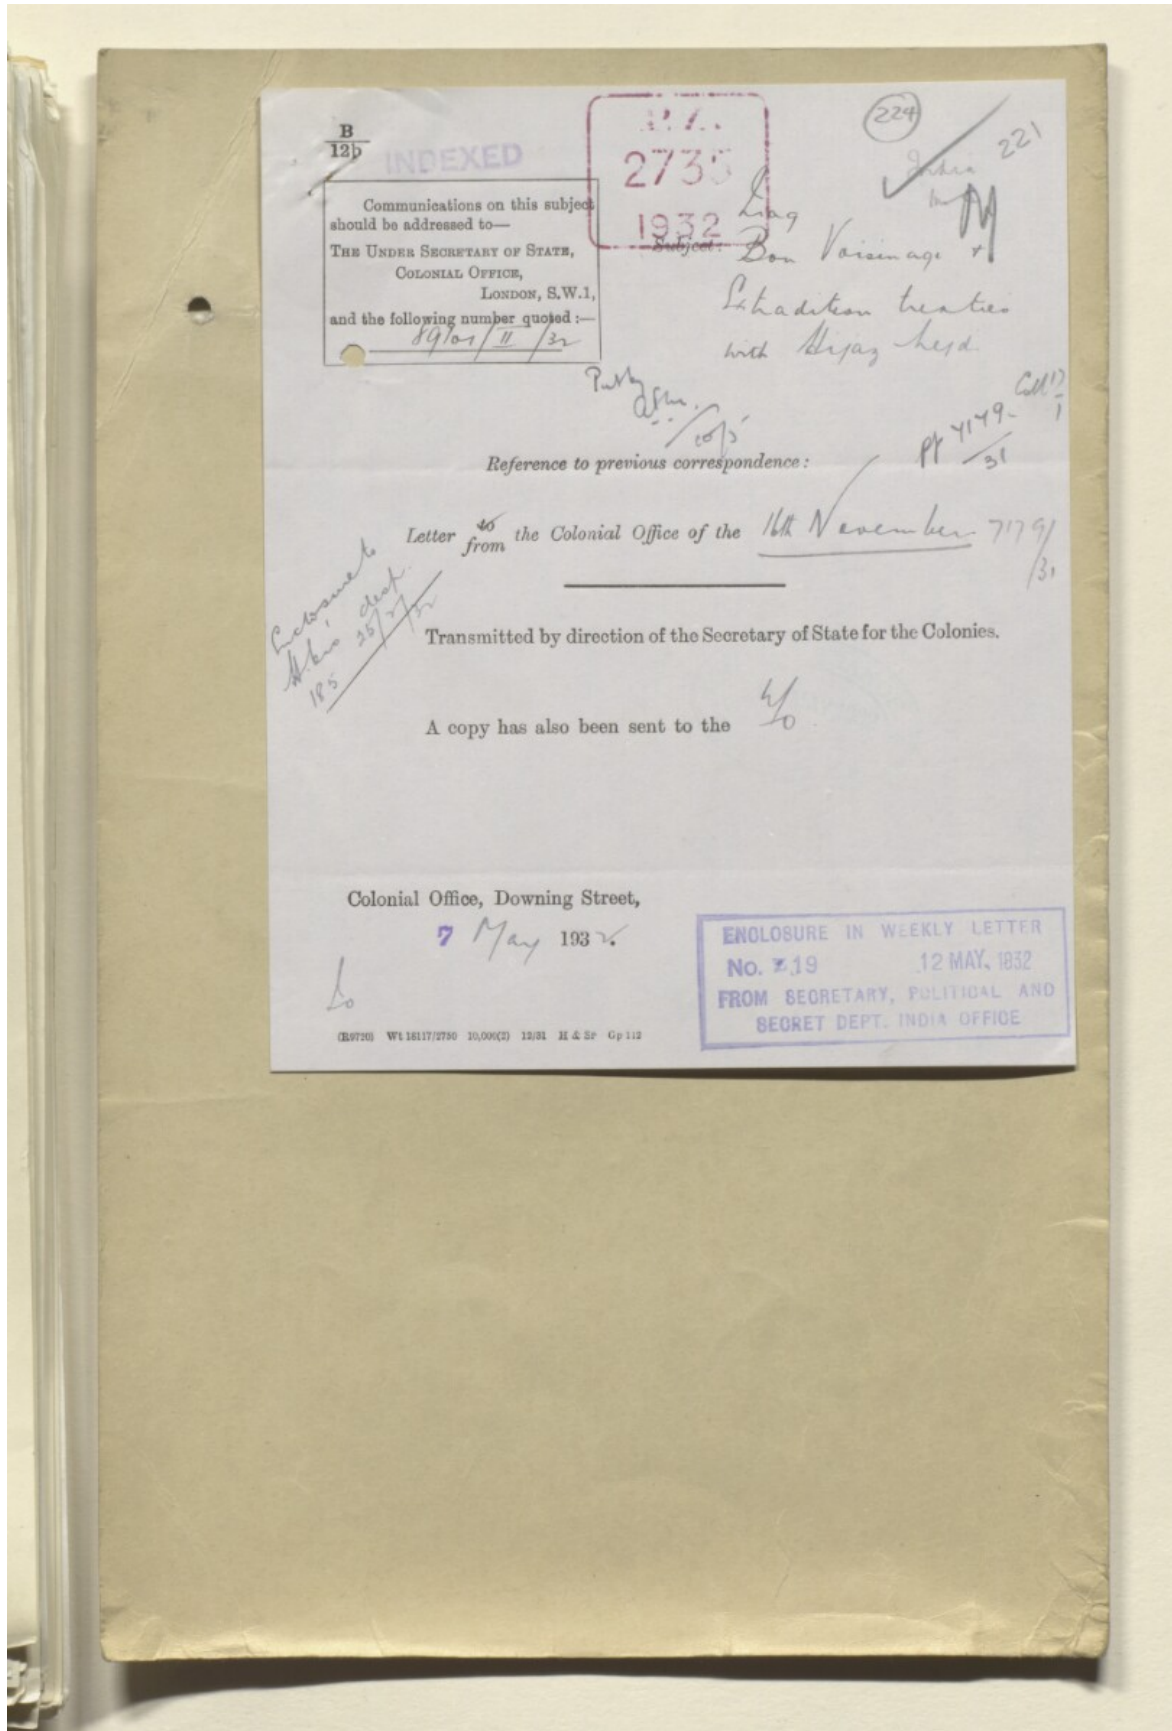 B
12b
INDEXED
P.Z.
2735
1932
224
221
India
Communications on this subject
should be addressed to—
THE UNDER SECRETARY OF STATE,
COLONIAL OFFICE,
LONDON, S.W.1,
and the following number quoted :—
89101/II/32
Subject:
Iraq
Bon Voisinage &
Extradition treaties
with Hijaz Nejd
Coll 17
1
Reference to previous correspondence :
Letter to from the Colonial Office of the 16th November 7179/31
Enclosure to
H. Cr's desp.
185 25/2/32
Transmitted by direction of the Secretary of State for the Colonies.
A copy has also been sent to the
Colonial Office, Downing Street,
7 May 1932.
ENCLOSURE IN WEEKLY LETTER
No. 19 12 MAY. 1932
FROM SECRETARY, POLITICAL AND
SECRET DEPT. INDIA OFFICE
(R9720) Wt 18117/2750 10,000(2) 12/31 H & SP Gp 112